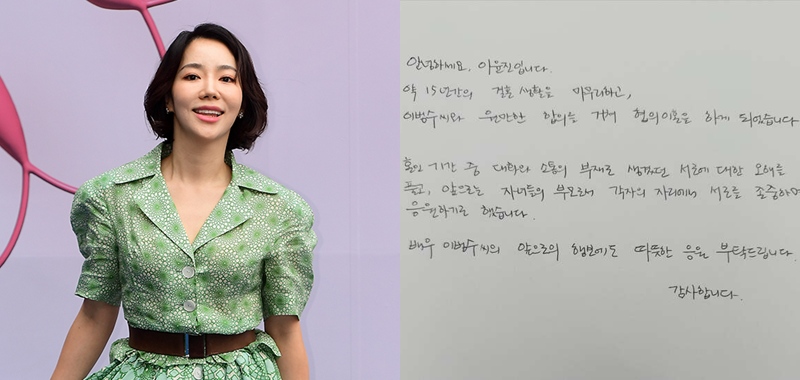 안녕하세요. 이윤진입니다.
약 15년간의 결혼 생활을 마무리하고,
이범수씨와 원만한 합의를 거쳐 협의이혼을 하게 되었습니다
혼인 기간 중 대화와 소통의 부재로 생겼던 서로에 대한 오해를
풀고, 앞으로는 자녀들의 부모로서 각자의 자리에서 서로를 존중하며
응원하기로 했습니다.
배우 이범수씨의 앞으로의 행보에도 따뜻한 응원 부탁드립니다.
감사합니다.